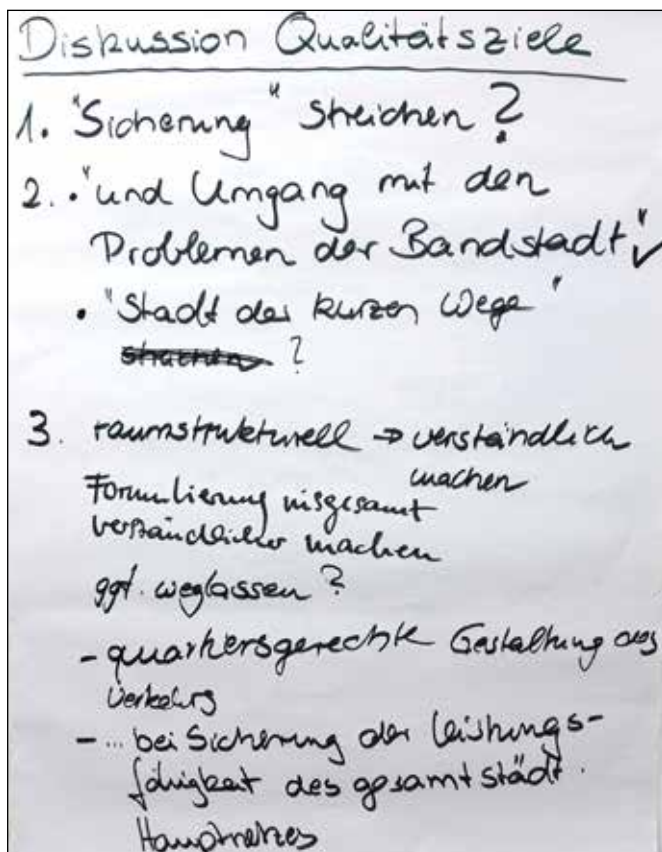 Diskussion Qualitätsziele
1. "Sicherung" streichen?
2. • "und Umgang mit den
Problemen der Bandstadt" ✓
• "Stadt der kurzen Wege"
streichen ?
3. raumstrukturell → verständlich
machen
Formulierung insgesamt
verständlicher machen
ggf. weglassen?
- quartiersgerechte Gestaltung des
Verkehrs
- ... bei Sicherung der Leistungs-
fähigkeit des gesamtstädt.
Hauptnetzes